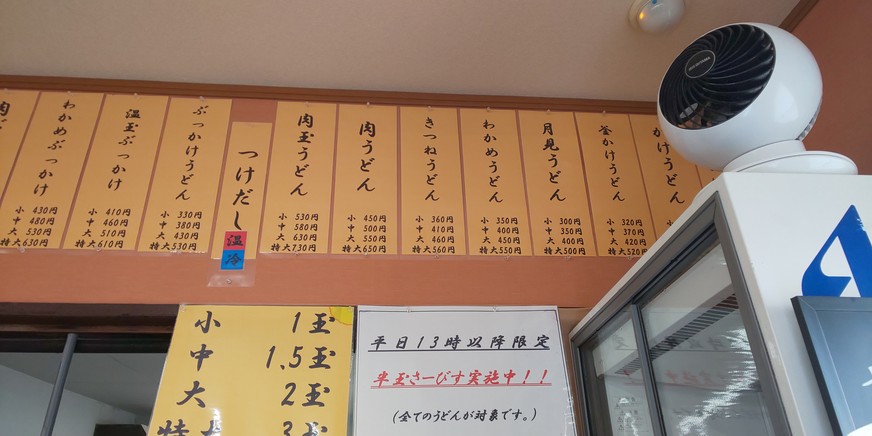 わかめぶっかけ
小 430円
中 480円
大 530円
特大630円
温玉ぶっかけ
小 410円
中 460円
大 510円
特大610円
ぶっかけうどん
小 330円
中 380円
大 430円
特大530円
つけだし
温
冷
肉玉うどん
小 530円
中 580円
大 630円
特大730円
肉うどん
小 450円
中 500円
大 550円
特大650円
きつねうどん
小 360円
中 410円
大 460円
特大560円
わかめうどん
小 350円
中 400円
大 450円
特大550円
月見うどん
小 300円
中 350円
大 400円
特大500円
釜かけうどん
小 320円
中 370円
大 420円
特大520円
かけうどん
小 1玉
中 1.5玉
大 2玉
特大 3玉
平日13時以降限定
半玉さーびす実施中!!
(全てのうどんが対象です。)